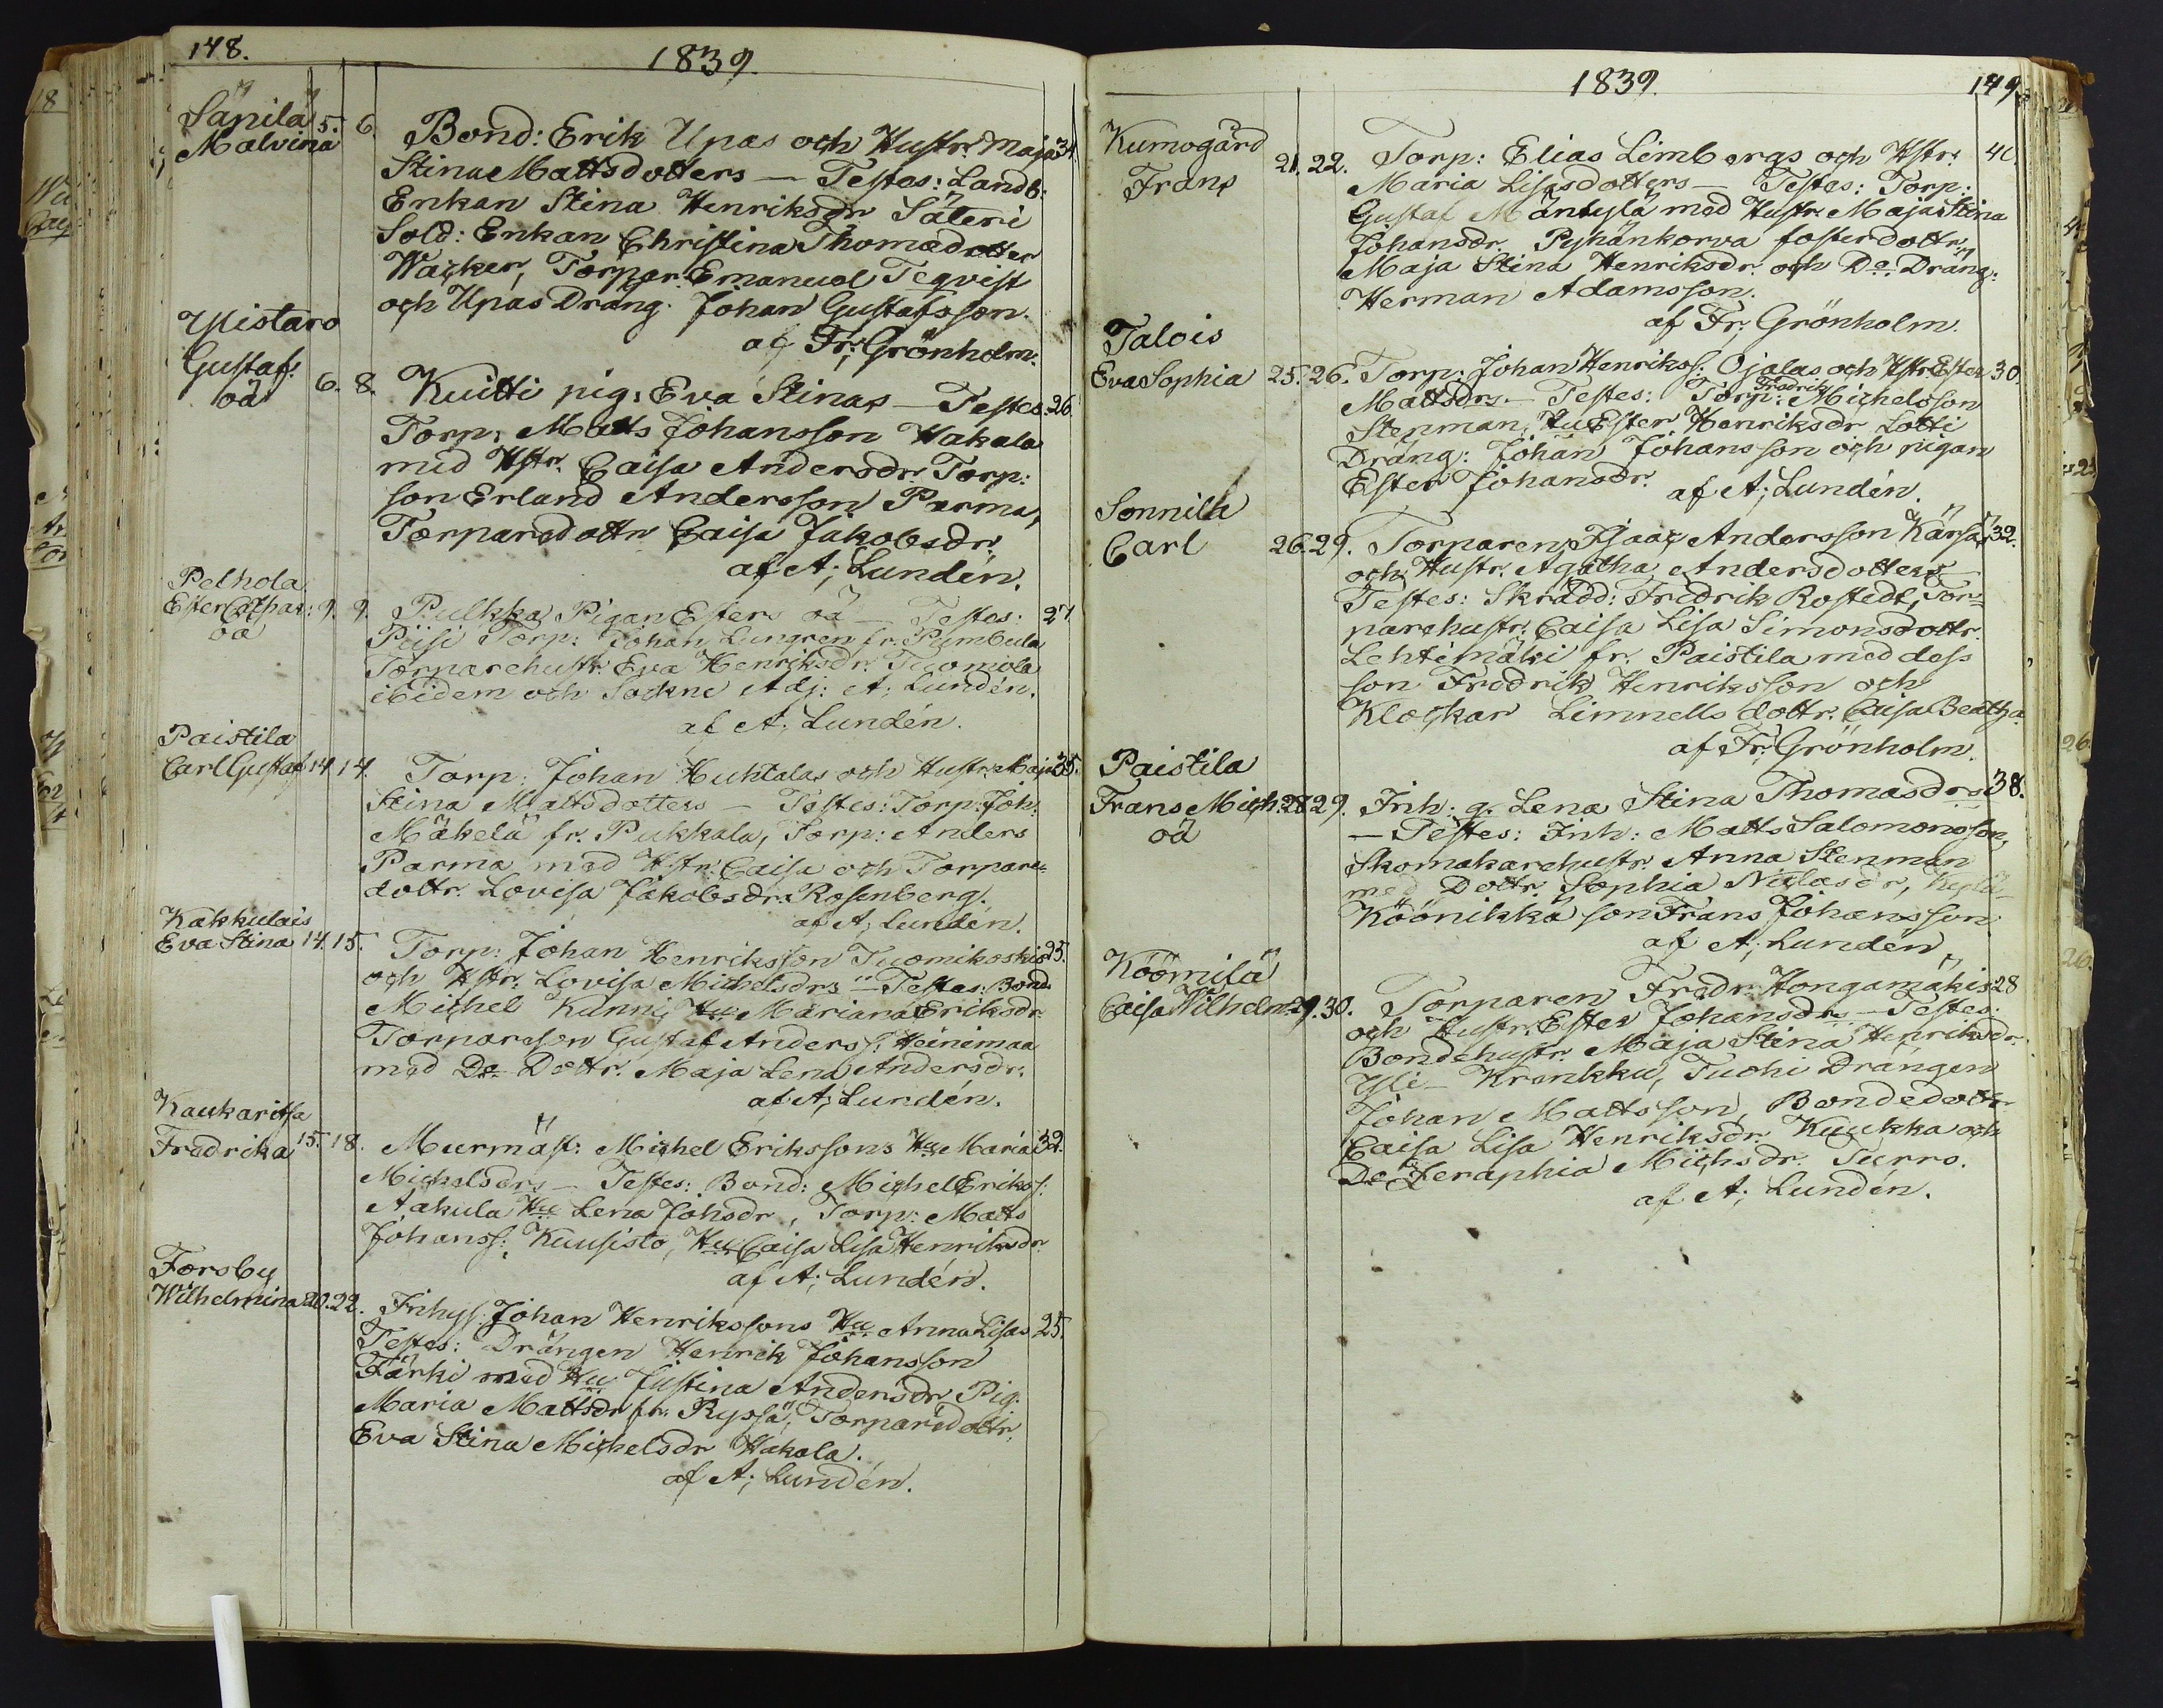 148.
1839.
Säpilä
Malvina
5. 6. Bond: Erik Upas och Hustr: Maja 34
Stina Mattsdotters — Testes: Landb:
Enkan Stina Henriksdr Säteri
Sold: Enkan Christina Thomædotter
Wacker, Torpar: Emanuel Teqvist
och Upas Dräng: Johan Gustafsson.
af Fr; Grönholm.
Ylistaro
Gustaf
oä
6. 8. Kuitti pig: Eva Stinas — Testes: 26
Torp: Matts Johansson Hakala
med Hstr. Caisa Andersdr. Torp:
son Erland Andersson Parma,
Torparedottr Caisa Jakobsdr.
af A; Lundén.
Pelhola
Ester Caspar:
oä
9. 9. Pulkka Pigan Esters oä — Testes: 27
Piisi Torp: Johan Lungren fr. Pumbula
Torparehustr. Eva Henriksdr. Tuomiola
ibidem och Sockne Adj: A: Lundén.
af A; Lundén.
Paistila
Carl Gustaf 14 14. Torp: Johan Huhtalas och Hustr: Maja 35.
Stina Mattsdotters — Testes: Torp: Joh:
Mäkelä fr. Pukkala, Torp: Anders
Parma med Hstr: Caisa och Torpare-
dottr. Lovisa Jakobsdr. Rosenberg.
af A; Lundén.
Kakkulais
Eva Stina 14. 15. Torp: Johan Henriksson Tuomikoskis 25.
och Hstr: Lovisa Michelsdrs — Testes: Bond:
Michel Kunni, Hu Mariana Eriksdr.
Torpareson Gustaf Anders: Heinimaa
med Do Dottr. Maja Lena Andersdr.
af A; Lundén.
Kaukaritsa
Fredrika 15. 18. Murmäst: Michel Erikssons Hu Maria 32.
Michelsdrs — Testes: Bond: Michel Eriks:
Aakula Hu Lena Johsdr, Torp: Matts
Johanss: Kuusisto, Hu Caisa Lisa Henriksdr.
af A; Lundén.
Forsby
Wilhelmina 20. 22. Inhys: Johan Henrikssons Hu Anna Lisas 25.
Testes: Drängen Henrik Johansson
Färki med Hu Justina Andersdr. Pig:
Maria Mattsdr fr. Ryssä, Torparedottr.
Eva Stina Michelsdr Hakala.
af A; Lundén.
1839.
149.
Kumogård
Frans
21. 22. Torp: Elias Limbergs och Hstr:
Maria Lisasdotters — Testes: Torp:
Gustaf Mäntylä med Hustr. Maja Stina
Johansdr. Pyhänkorva fosterdottr.
Maja Stina Henriksdr. och Do. Dräng:
Herman Adamsson.
af Fr; Grönholm.
Talois
Eva Sophia 25. 26. Torp: Johan Henrikss: Ojalas och Hstr: Ester 30.
Mattsdrs — Testes: Torp: Fredrik Michelsson
Stenman, Hu Ester Henriksdr Lotti
Dräng: Johan Johansson och pigan
Ester Johansdr. af A; Lundén.
Sonnila
Carl 26. 29. Torparen Isaac Andersson Kärsä 32.
och Hustr. Agatha Andersdotters
Testes: Skrädd: Fredrik Rostedt, Tor-
parehustr. Caisa Lisa Simonsdottr.
Lehtimäki fr. Paistila med dess
son Fredrik Henriksson och
Klockar Limnells dottr. Caisa Beatha.
af Fr; Grönholm.
Paistila
Frans Mich: 28 29.
oä
Inh: q. Lena Stina Thomasdrs 38.
— Testes: Inh: Matts Salomonsson,
Skomakarehustr. Anna Stenman
med Dottr. Sophia Niclasdr,
Köönikkä son Frans Johansson.
af A; Lundén.
Köömilä
Caisa Wilhelmina 29. 30. Torparen Fredr: Hongamäkis 28
och Hustr. Ester Johansdrs — Testes:
Bondehustr. Maja Stina Henriksdr.
Yli-Krankku, Tuohi Drängen
Johan Mattsson, Bondedottr
Caisa Lisa Henriksdr. Kuukka och
Do Seraphia Michsdr. Turro.
af A; Lundén.